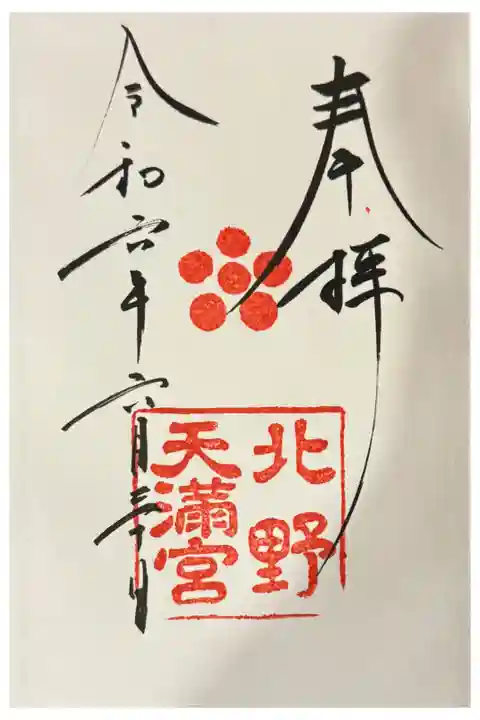 奉拝
令和六年六月三十日
北野
天満宮